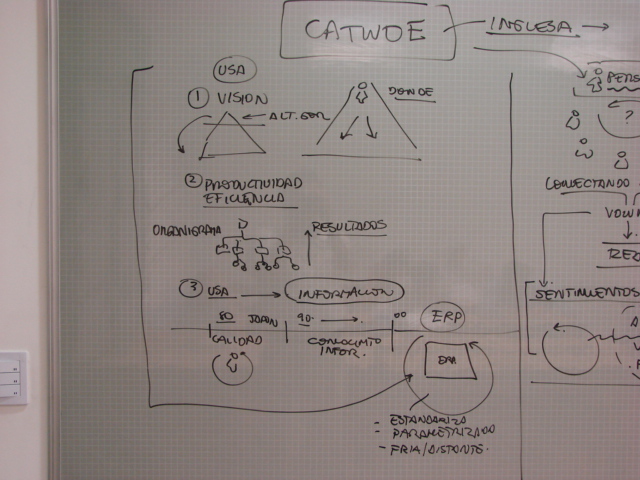 CATWOE
INGLESA
USA
1 VISION
ALT. GER
DONDE
2 PRODUCTIVIDAD
EFICIENCIA
ORGANIGRAMA
D
RESULTADOS
3 USA
INFORMACION
80 JAPAN 90 00
CALIDAD
CONOCIMTO
INFOR.
ERP
- ESTANDARIZA
- PARAMETRIZADO
- FRIA/DISTANTE.
PERS
?
CONECTANDO
VOLUN
SENTIMIENTOS